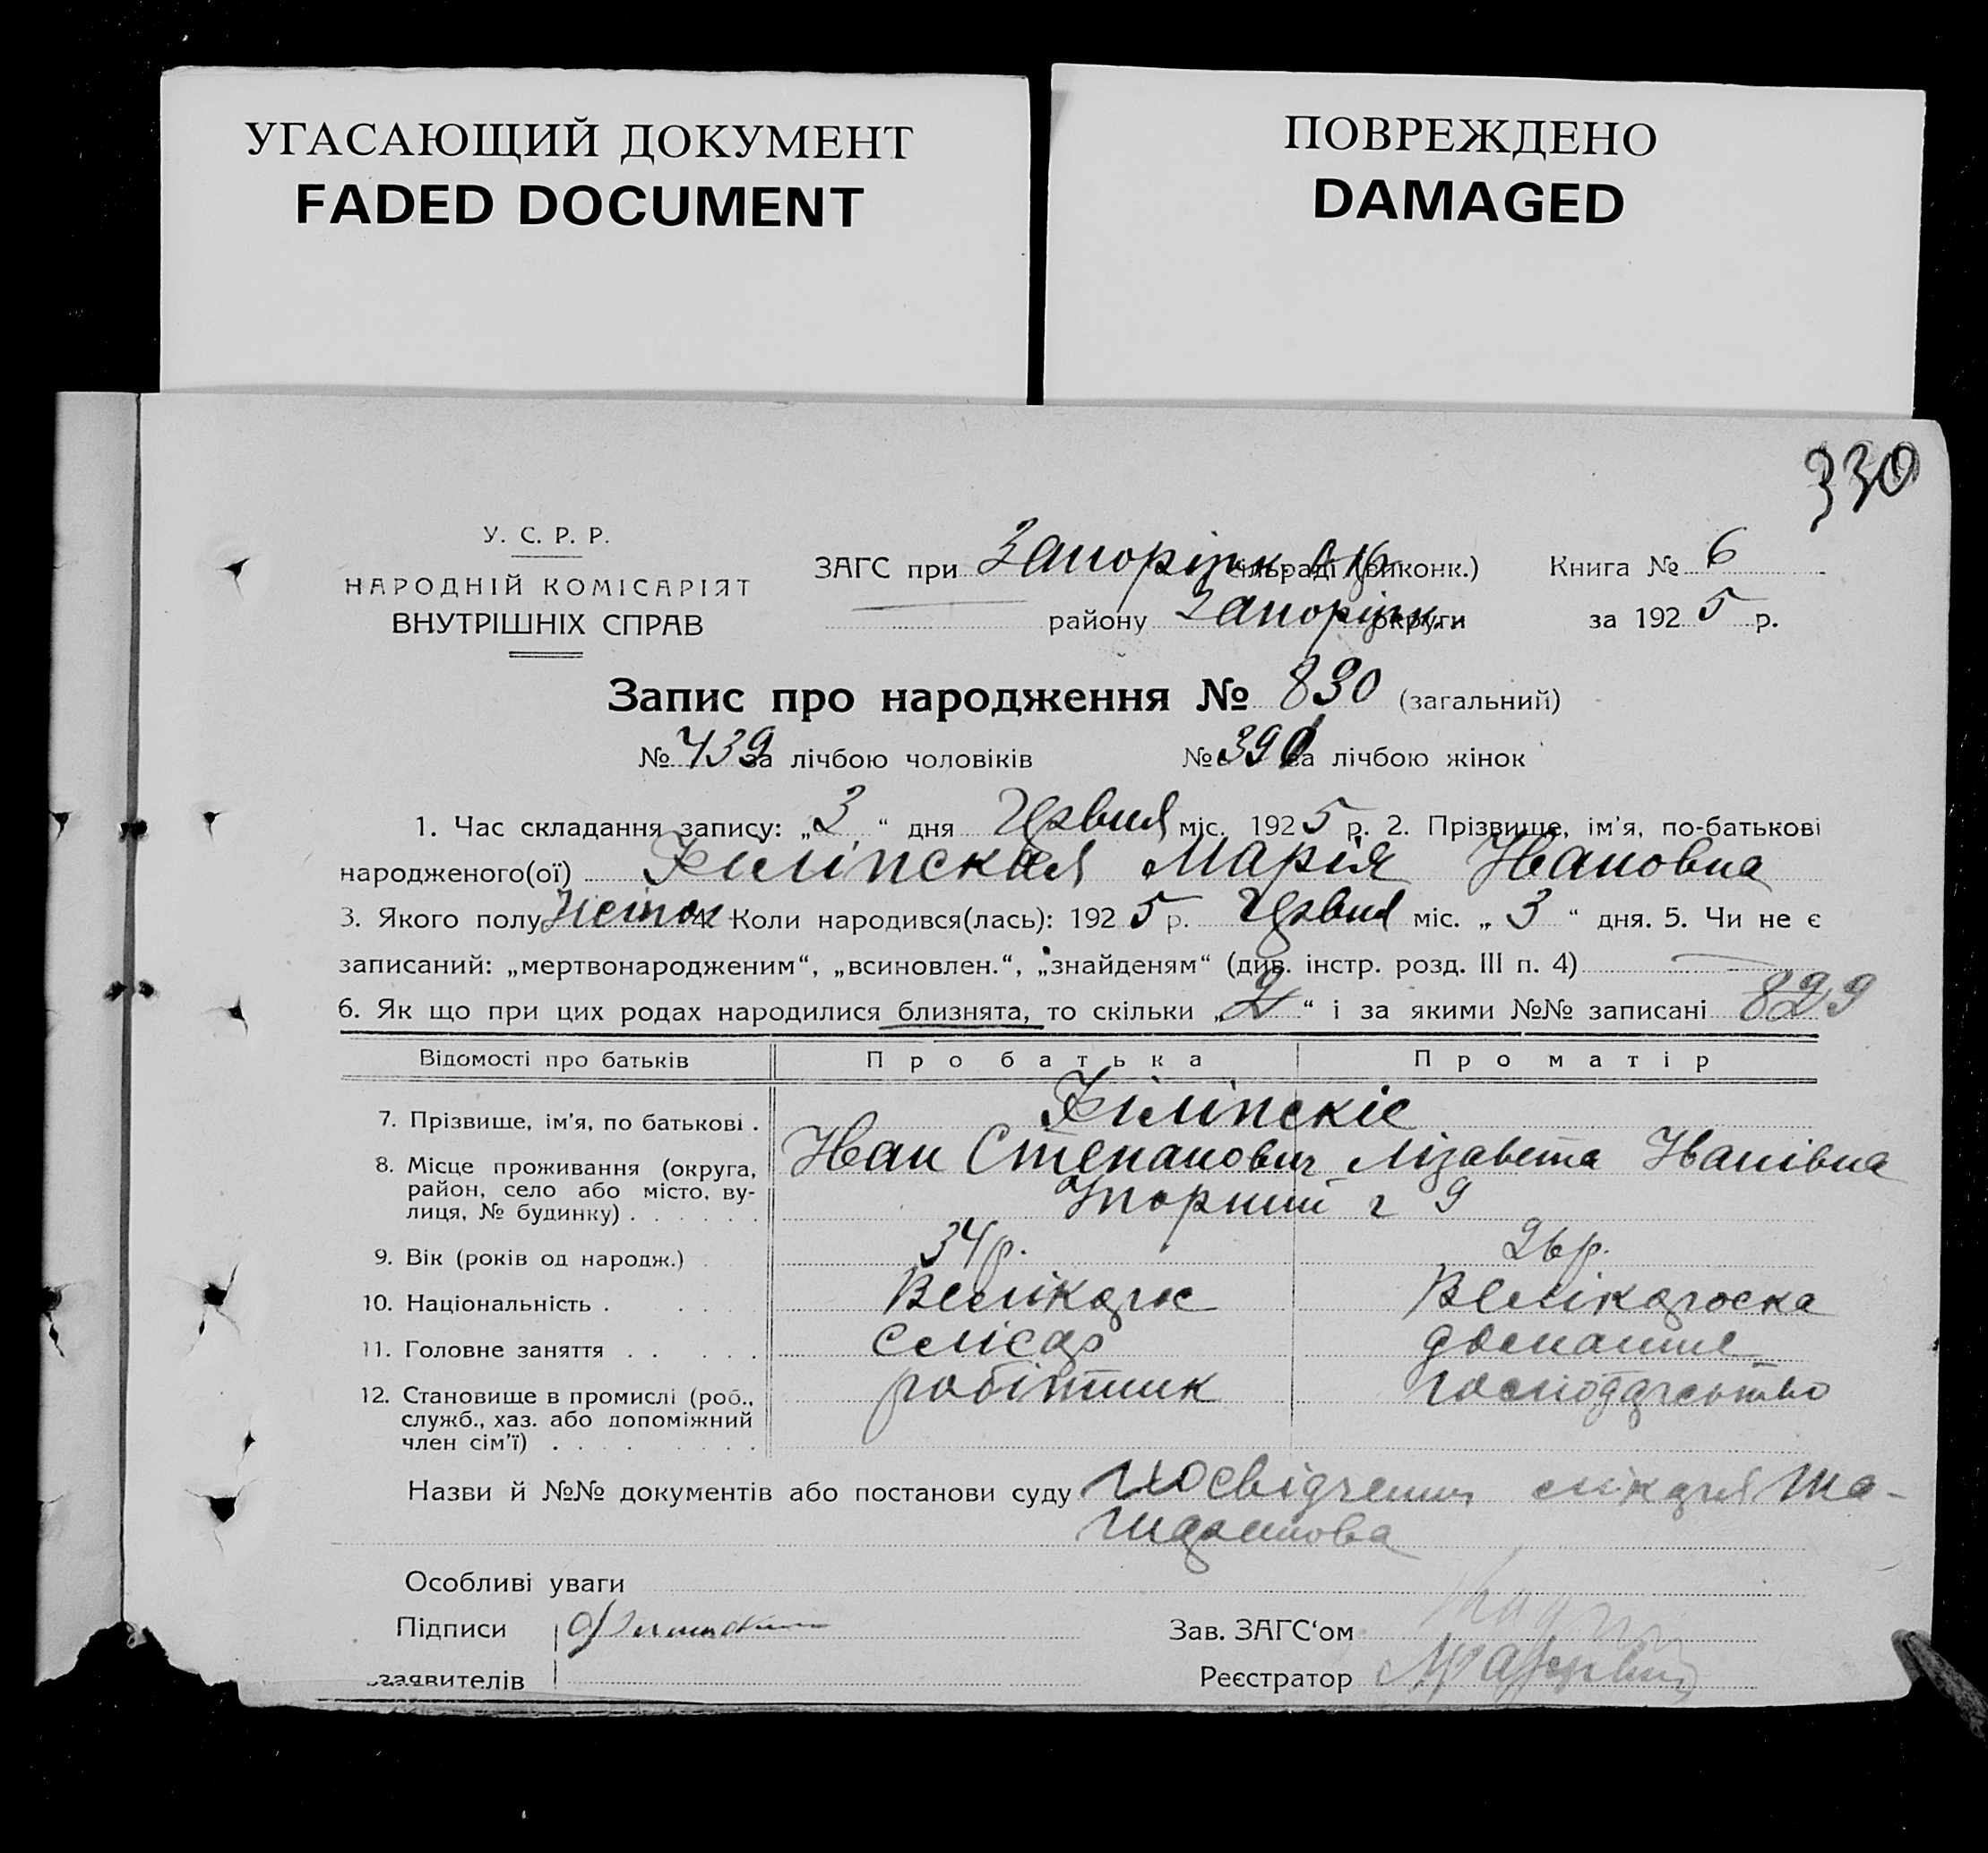 УГАСАЮЩИЙ ДОКУМЕНТ
FADED DOCUMENT
ПОВРЕЖДЕНО
DAMAGED
330
У. С. Р. Р.
НАРОДНІЙ КОМІСАРІЯТ
ВНУТРІШНІХ СПРАВ
ЗАГС при Запоріжк. сільраді (виконк.) Книга № 6
району Запоріжк. округи за 1925 р.
Запис про народження № 830 (загальний)
№ 439 за лічбою чоловіків № 391 за лічбою жінок
1. Час складання запису: „3“ дня Червня міс. 1925 р. 2. Прізвище, ім'я, по-батькові
народженого(ої) Філіпская Марія Ивановна
3. Якого полу Жіноч 4. Коли народився(лась): 1925 р. Червня міс. „3“ дня. 5. Чи не є
записаний: „мертвонародженим“, „всиновлен.“, „знайденям“ (див. інстр. розд. III п. 4)
6. Як що при цих родах народилися близнята, то скільки „2“ і за якими №№ записані 829
Відомості про батьків Про батька Про матір
7. Прізвище, ім'я, по батькові . Філіпскіе
Иван Степанович Лізавета Іванівна
8. Місце проживання (округа,
район, село або місто, ву-
лиця, № будинку) . . . . . . 9
9. Вік (років од народж.) 34 р. 26 р.
10. Національність . . . . Велікарос Велікароска
11. Головне заняття . . . . . . Слісар домашнє
12. Становище в промислі (роб., робітник господарство
служб., хаз. або допоміжний
член сім'ї) . . . . . . . .
Назви й №№ документів або постанови суду Посвідчення лікаря Ша-
Особливі уваги
Підписи
заявителів
Зав. ЗАГС'ом
Реєстратор